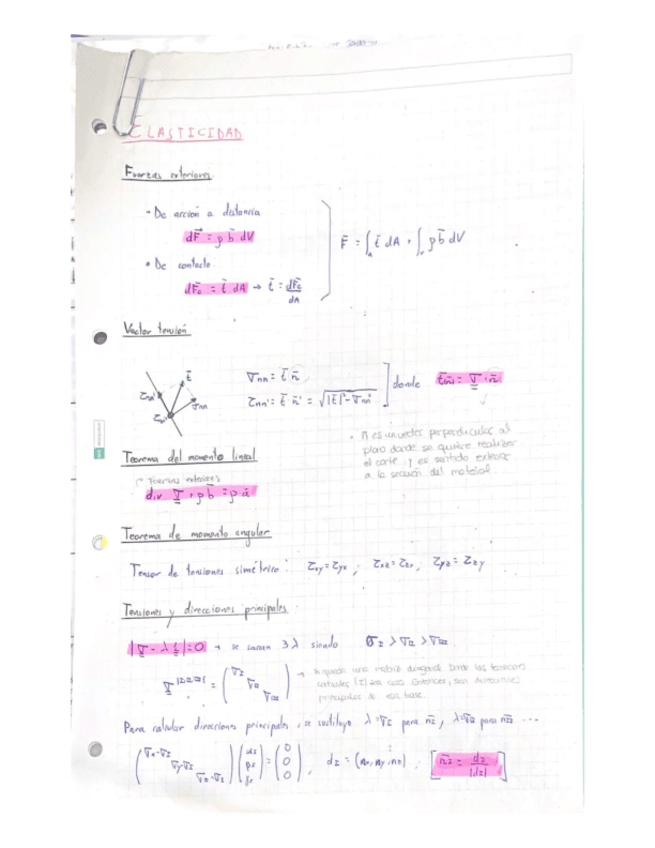 ELASTICIDAD
Fuerzas exteriores.
• De acción a distancia
dF̄ = ρ b̄ dV
F̄ = ∫_A t̄ dA + ∫_V ρ b̄ dV
• De contacto
dF̄c = t̄ dA → t̄ = dF̄c/dA
Vector tensión
t̄
σnn
σnn = t̄ · n̄
τnn' = t̄ · n̄' = √(|t̄|² - σnn²)
donde t̄(n̄) = σ · n̄
• n es un vector perpendicular al
plano donde se quiere realizar
el corte y es sentido exterior
a la sección del material.
Teorema del momento lineal
Fuerzas exteriores
div σ + ρ b̄ = ρ ā
Teorema de momento angular
Tensor de tensiones simétrico: τxy = τyx ; τxz = τzx, τyz = τzy
Tensiones y direcciones principales.
|σ - λ I| = 0 → se sacan 3 λ siendo σI > σII > σIII
→ queda una matriz diagonal donde las tensiones
principales de esa base.
Para calcular direcciones principales, se sustituye λ = σI para n̄I, λ = σII para n̄II ...
dI = (nx, ny, nz), [n̄I = dI/|dI|]